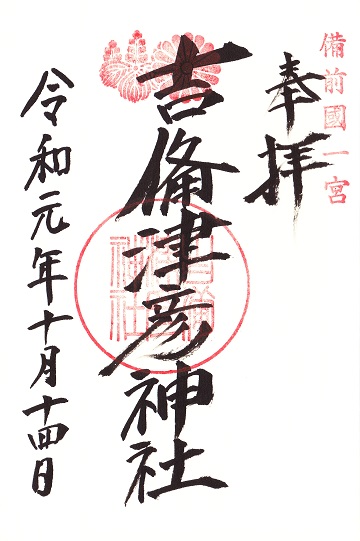 備前國一宮
奉拝
吉備津彦神社
令和元年十月十四日